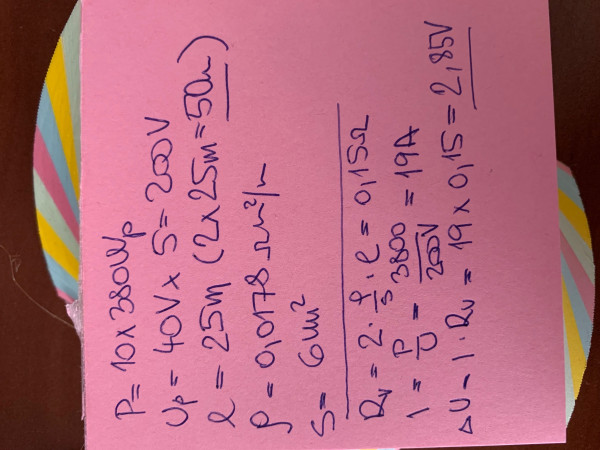 P = 10 x 380Wp
Up = 40V x 5 = 200V
l = 25m (2 x 25m = 50m)
ρ = 0,0178 Ωm²/m
S = 6mm²
Rv = 2 · ρ/S · l = 0,15Ω
I = P/U = 3800/200V = 19A
ΔU = I · Rv = 19 x 0,15 = 2,85V